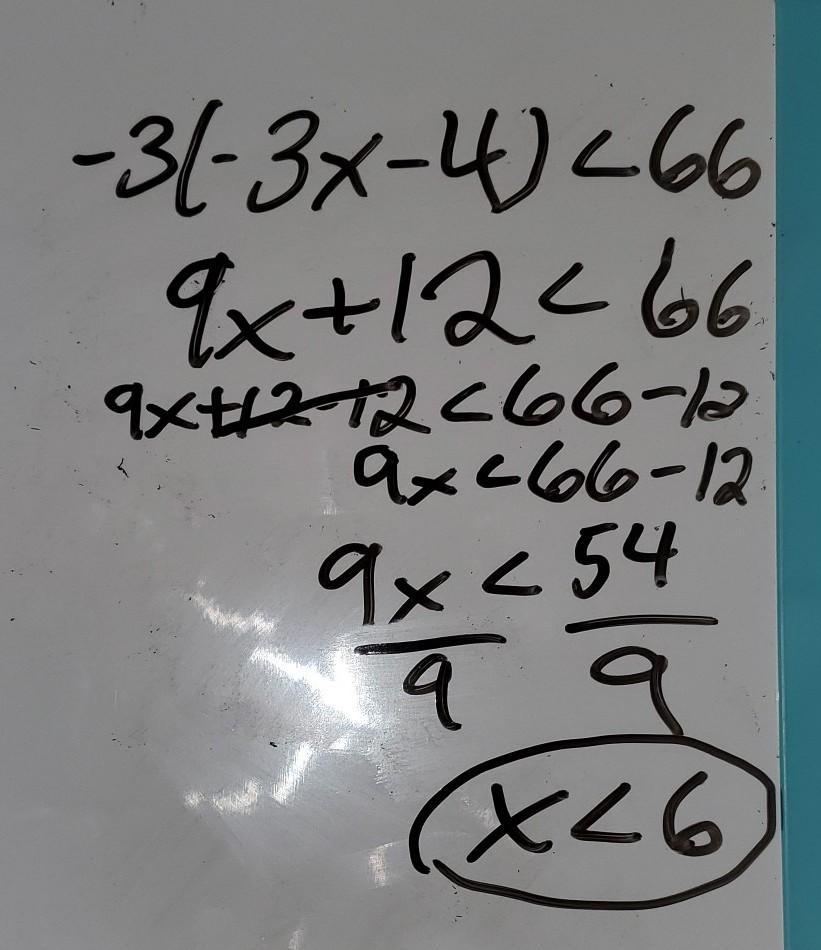 -3(-3x-4)<66
9x+12<66
9x+12-12<66-12
9x<66-12
9x<54
9 9
x<6